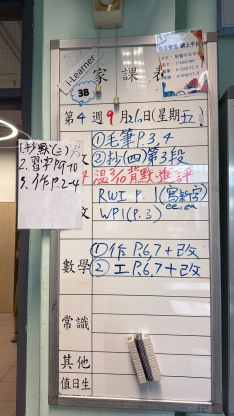 i-Learner
家課表
3B
自主學習 網上平台
第4週9月26日(星期五)
1.抄默(三)
2.習字P.9-10
3.作P.2-4
①毛筆P.3,4
②抄(四)第3段
溫3/10背默,進評
RWI P.1(寫新字)
ee, ea
WP1(P.3)
文
數學
①作P.6,7+改
②工P.6,7+改
常識
其他
值日生